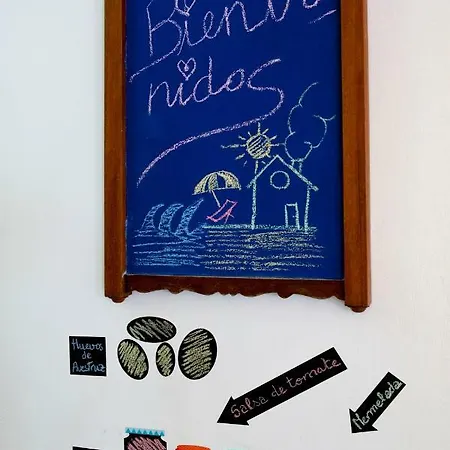 Bienve
nidos
Huevos
de
Avestruz
Salsa de tomate
Mermelada